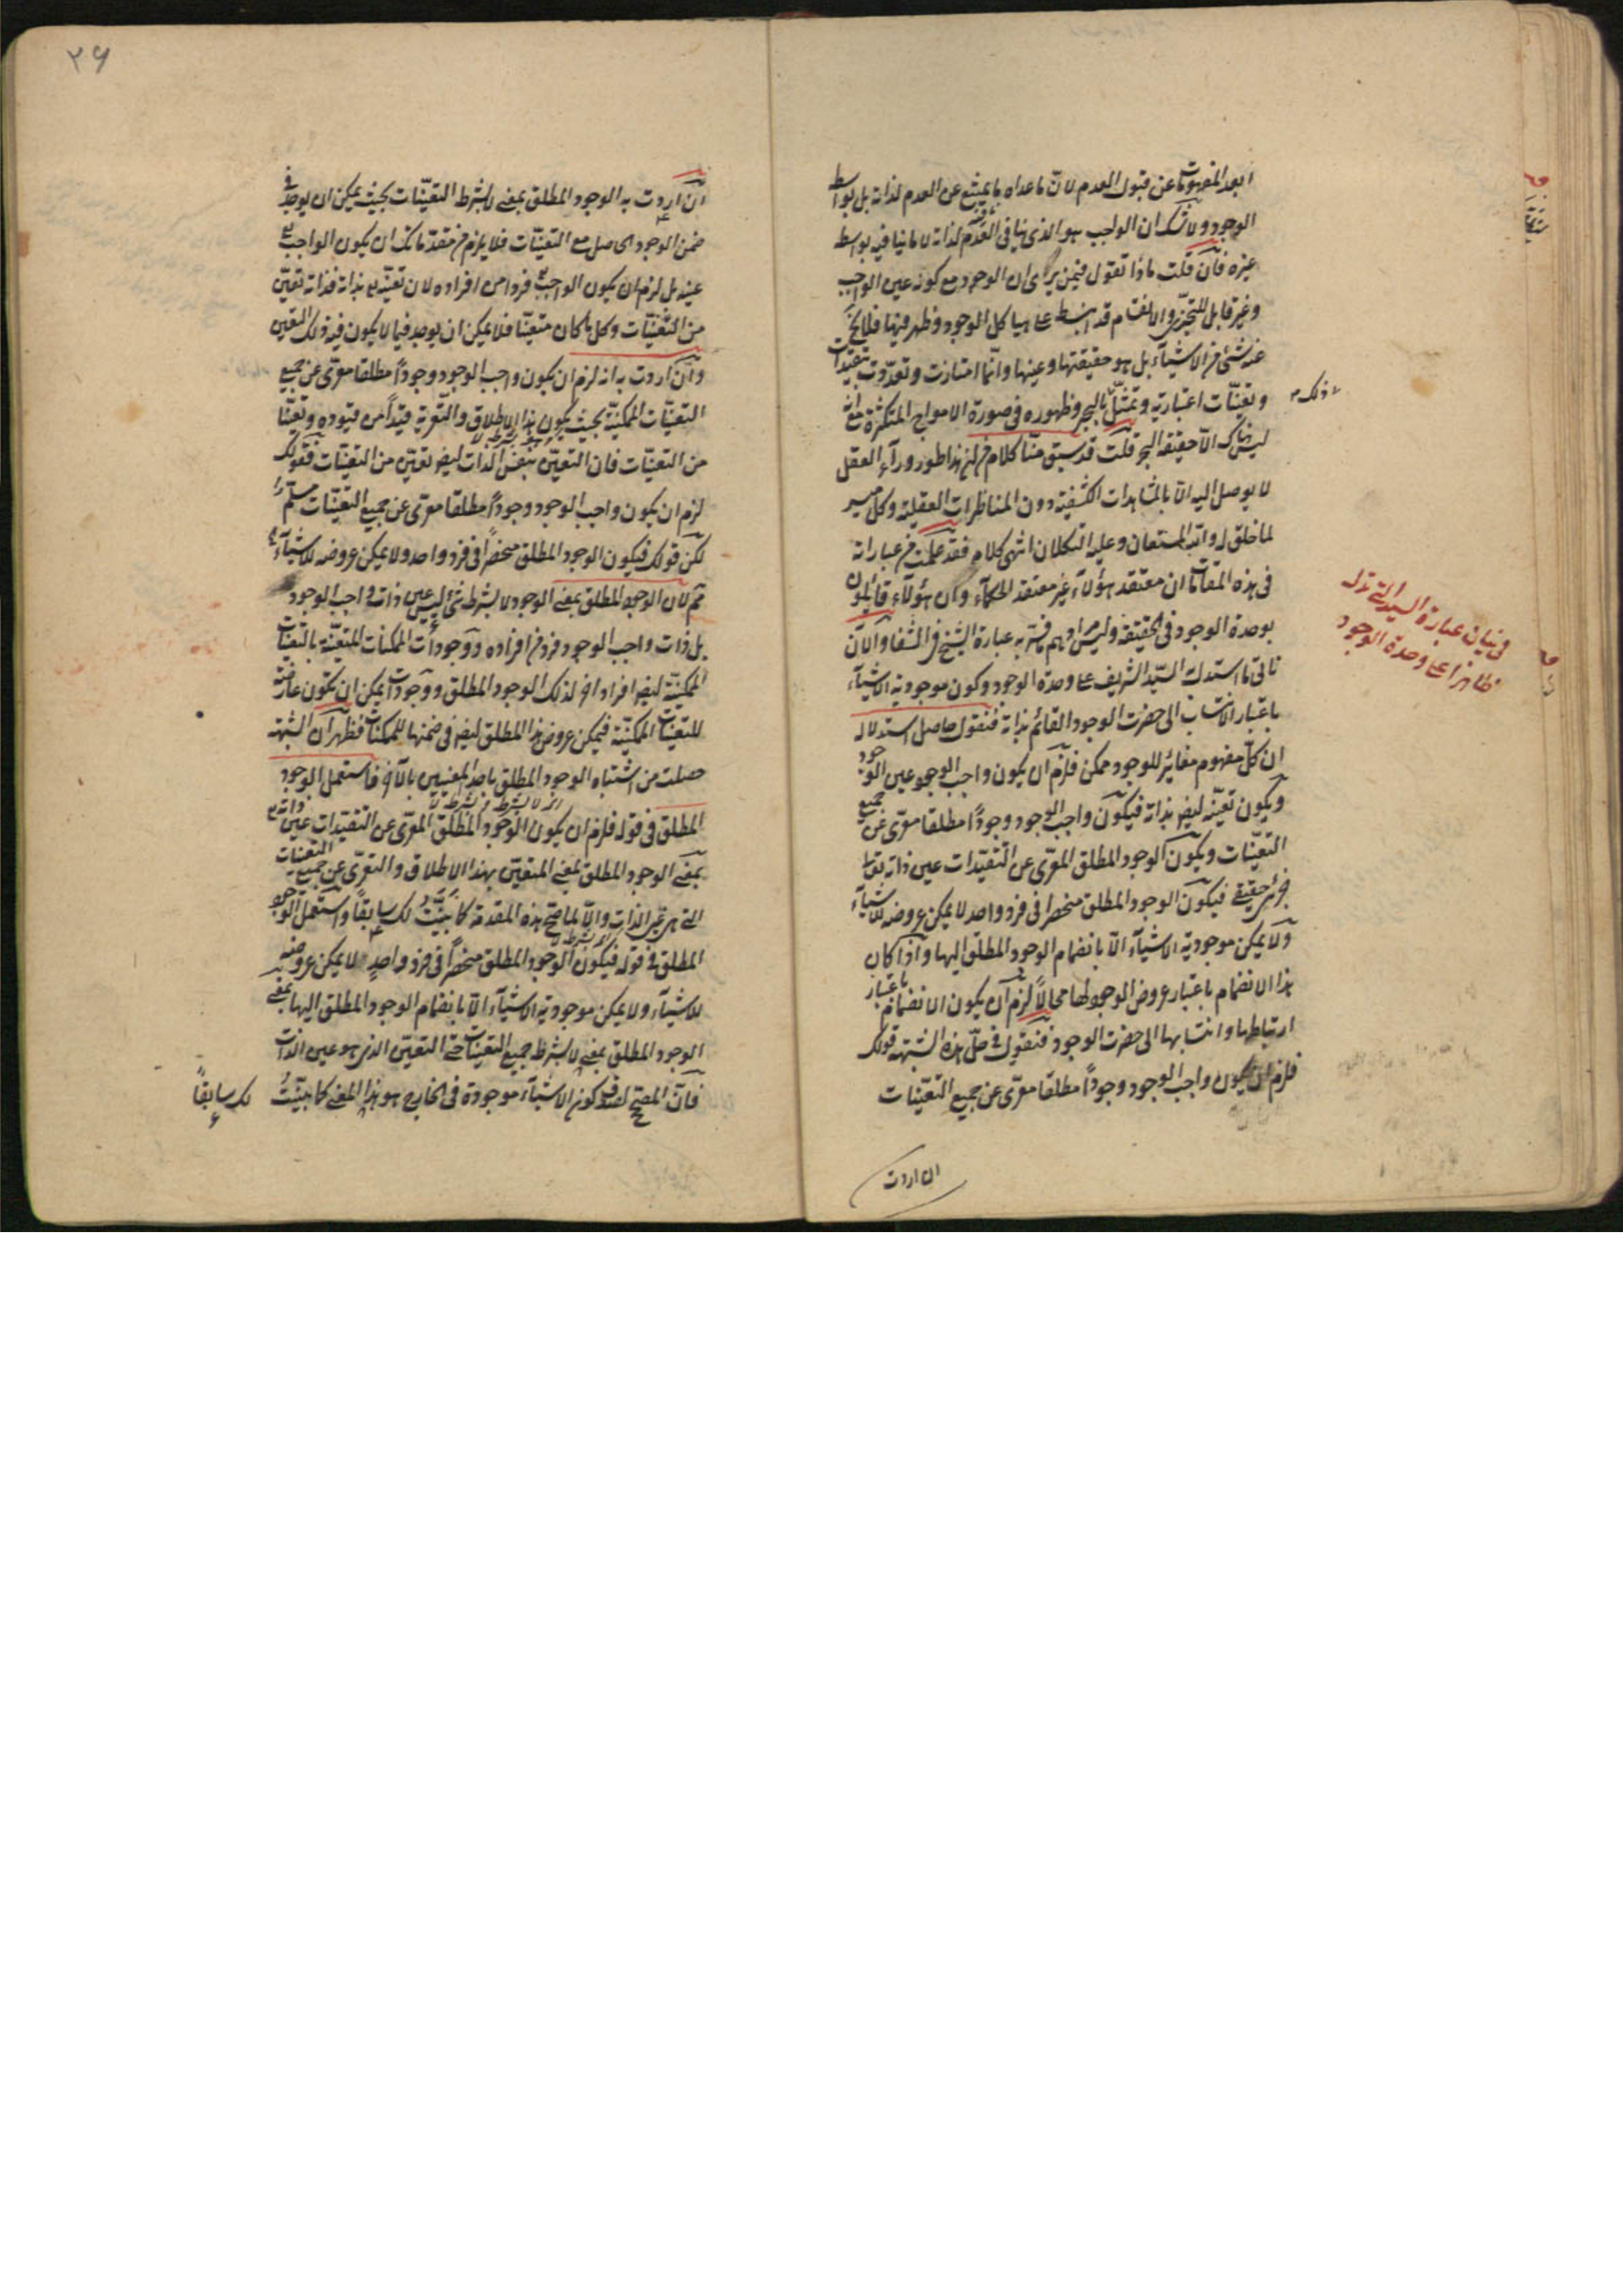 ابعد المفهومات عن قبول العدم لان ماعداه ما يمتنع عن العدم لذاته بل بواسطة
الوجود ولا شك ان الواجب هو الذى ينافى العدم لذاته لا ما ينافيه بواسطة
غيره فان قلت ماذا تقول فيمن يرى ان الوجود مع كونه عين الواجب
وغير قابل للتجزى والانقسام قد انبسط على هياكل الموجود وظهر فيها فلا يخ
عنه شئ من الاشياء بل هو حقيقتها وعينها وانما امتازت وتعددت بتقيدات
وتعينات اعتبارية ويمثل ذلك بالبحر وظهوره فى صورة الامواج المتكثرة مع انه
ليس هناك الا حقيقة البحر قلت قد سبق منا كلام فى ان هذا طور وراء العقل
لا يوصل اليه الا بالمشاهدات الكشفية دون المناظرات العقلية وكل ميسر
لما خلق له والله المستعان وعليه التكلان انتهى كلامه فقد علمت من عباراته
فى هذه المقامات ان معتقد هؤلاء غير معتقد الحكماء وان هؤلاء قايلون
بوحدة الوجود فى الحقيقة وليس مرادهم ما فسر به عبارة الشيخ فى الشفا والآن
نأتى ما استدل السيد الشريف على وحدة الوجود وكون موجودية الاشياء
باعتبار الانتساب الى حضرت الوجود القائم بذاته فنقول حاصل استدلاله
ان كل مفهوم مغائر للوجود ممكن فلزم ان يكون واجب الوجود عين الوجود
ويكون تعينه ليضا بذاته فيكون واجب الوجود وجودا مطلقا معرى عن جميع
التعينات ويكون الوجود المطلق المعرى عن التقيدات عين ذاته تعالى
جزئى حقيقى فيكون الوجود المطلق منحصرا فى فرد واحد لا يمكن عروضه للاشياء
ولا يمكن موجودية الاشياء الا بانضمام الوجود المطلق اليها واذا كان
هذا الانضمام باعتبار عروض الوجود لها محالا لزم ان يكون الانضمام باعتبار
ارتباطها وانتسابها الى حضرت الوجود فنقول فى حل هذه الشبهة قولك
فلزم ان يكون واجب الوجود وجودا مطلقا معرى عن جميع التعينات
ان اردت
فى بيان عبارة السيد التى تدل
ظاهرا على وحدة الوجود
٢٦
ان اردت به الوجود المطلق بمعنى لا بشرط التعينات بحيث يمكن ان يوجد فى
ضمن الوجود الحاصل مع التعينات فلا يلزم من مقدماتك ان يكون الواجب
عينه بل لزم ان يكون الواجب فردا من افراده لان تعينه بذاته فذاته تعين
من التعينات وكل ما كان متعينا فلا يمكن ان يوجد فيما لا يكون فيه ذلك التعين
وان اردت به انه لزم ان يكون واجب الوجود وجودا مطلقا معرى عن جميع
التعينات الممكنية بحيث يكون هذا الاطلاق والتعرية قيدا من قيوده وتعينا
من التعينات فان التعين بنفس الذات ليضا تعين من التعينات فقولك
لزم ان يكون واجب الوجود وجودا مطلقا معرى عن جميع التعينات مسلم
لكن قولك فيكون الوجود المطلق منحصرا فى فرد واحد ولا يمكن عروضه للاشياء
مم لان الوجود المطلق بمعنى الوجود لا بشرط شئ ليس عين ذات واجب الوجود
بل ذات واجب الوجود فرد من افراده ووجودات الممكنات المتعينة بالتعينات
الممكنية ليضا افراد اخر لذلك الوجود المطلق ووجودات يمكن ان تكون عارضة
للتعينات الممكنية فيمكن عروض هذا المطلق ليضا فى ضمنها للممكنات فظهر ان الشبهة
حصلت من اشتباه الوجود المطلق باحد المعنيين بالاخر فاستعمل الوجود
المطلق فى قوله فلزم ان يكون الوجود المطلق المعرى عن التقيدات عين ذاته
بمعنى الوجود المطلق بمعنى المتعين بهذا الاطلاق والتعرى عن جميع التعينات
التى هى غير الذات والا لما صح هذه المقدمة كما بينت لك سابقا واستعمل الوجود
المطلق فى قوله فيكون الوجود المطلق منحصرا فى فرد واحد لا يمكن عروضه
للاشياء ولا يمكن موجودية الاشياء الا بانضمام الوجود المطلق اليها بمعنى
الوجود المطلق بمعنى لا بشرط جميع التعينات حتى التعين الذى هو عين الذات
فان المصحح لصدق كون الاشياء موجودة فى الخارج هو هذا المعنى كما بينت لك سابقا